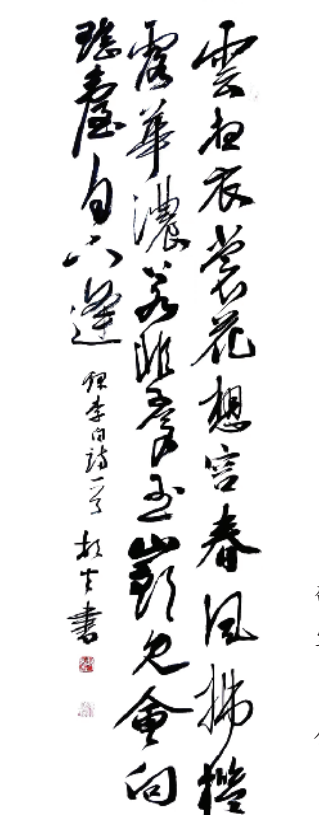 雲想衣裳花想容春風拂檻
露華濃若非羣玉山頭見會向
瑤臺月下逢 錄李白詩一首 書